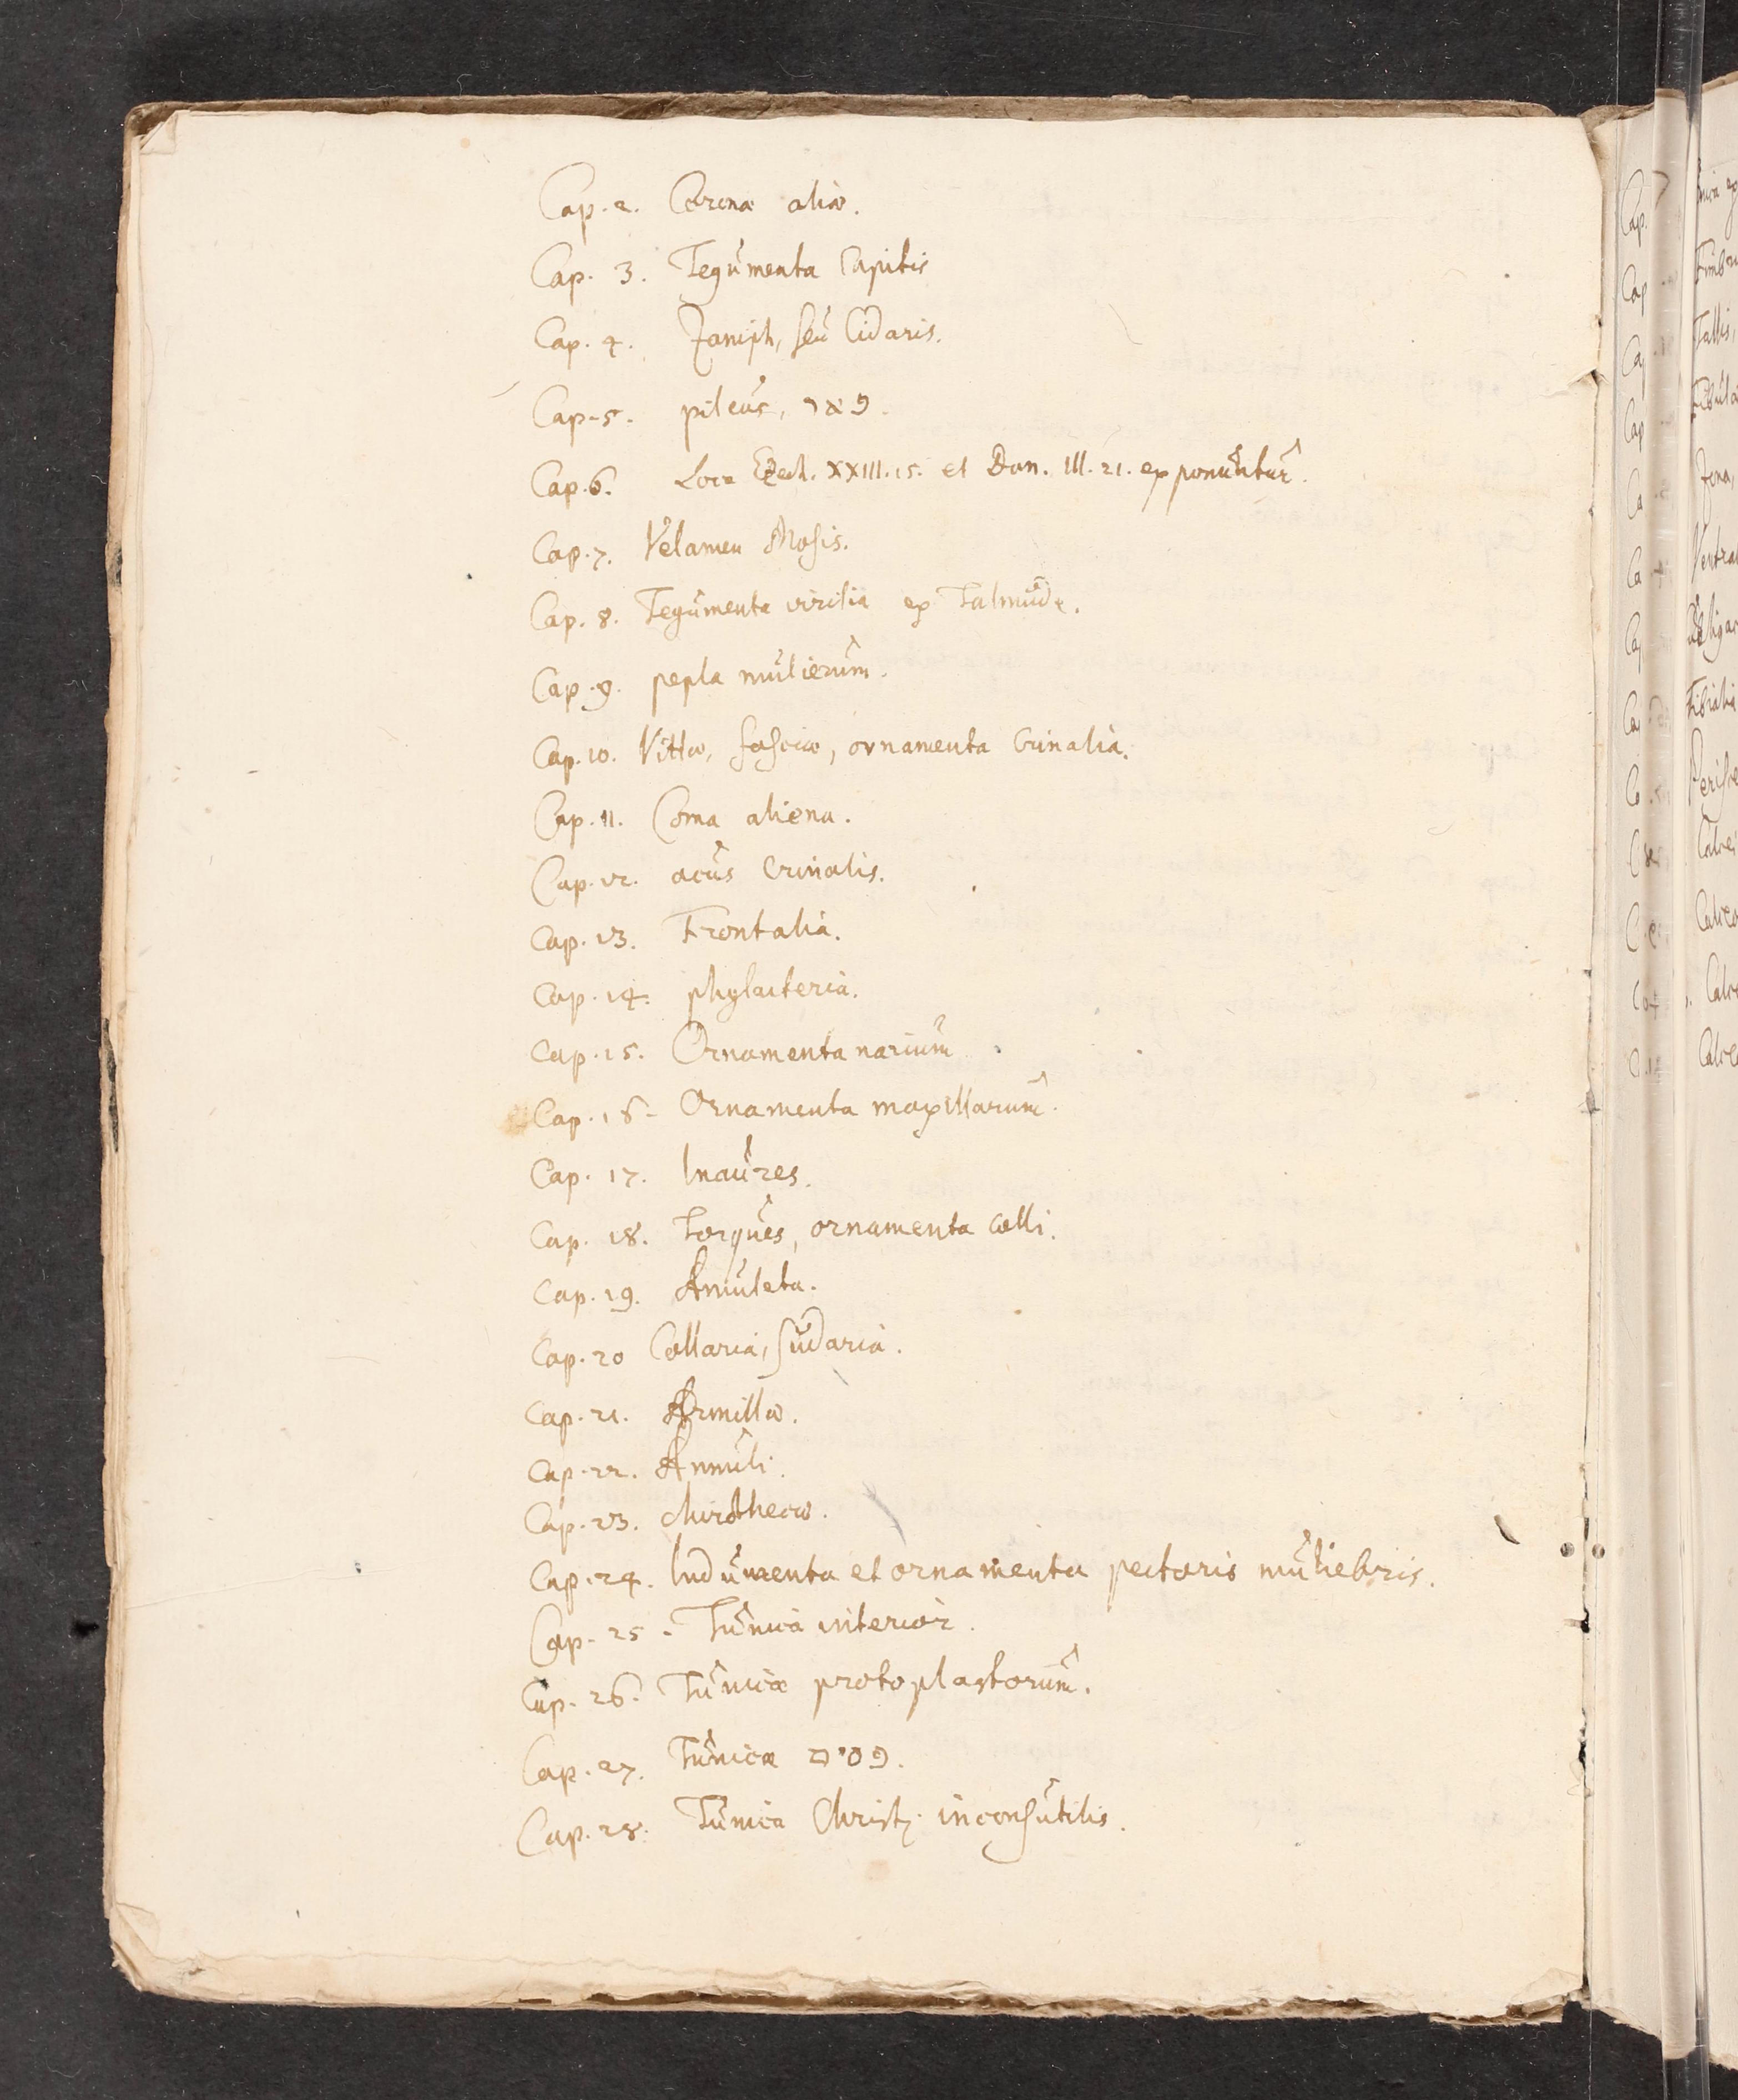 Cap. 2. Coronæ aliæ.
Cap. 3. Tegumenta Capitis
Cap. 4. Zaniph, seu Cidaris.
Cap. 5. pileus, פאר.
Cap. 6. Loca Ezech. XXIII. 15. et Dan. III. 21. exponuntur.
Cap. 7. Velamen Mosis.
Cap. 8. Tegumenta virilia ex Talmude.
Cap. 9. pepla mulierum.
Cap. 10. Vittæ, fasciæ, ornamenta Crinalia.
Cap. 11. Coma aliena.
Cap. 12. acus Crinalis.
Cap. 13. Frontalia.
Cap. 14. phylacteria.
Cap. 15. Ornamenta narium.
Cap. 16. Ornamenta maxillarum.
Cap. 17. Inaures.
Cap. 18. Torques, ornamenta colli.
Cap. 19. Amuleta.
Cap. 20 Collaria, Sudaria.
Cap. 21. Armillæ.
Cap. 22. Annuli.
Cap. 23. chirothecæ.
Cap. 24. Indumenta et ornamenta pectoris muliebris.
Cap. 25. Tunica interior.
Cap. 26. Tunicæ protoplastorum.
Cap. 27. Tunica פסים.
Cap. 28. Tunica Christi inconsutilis.